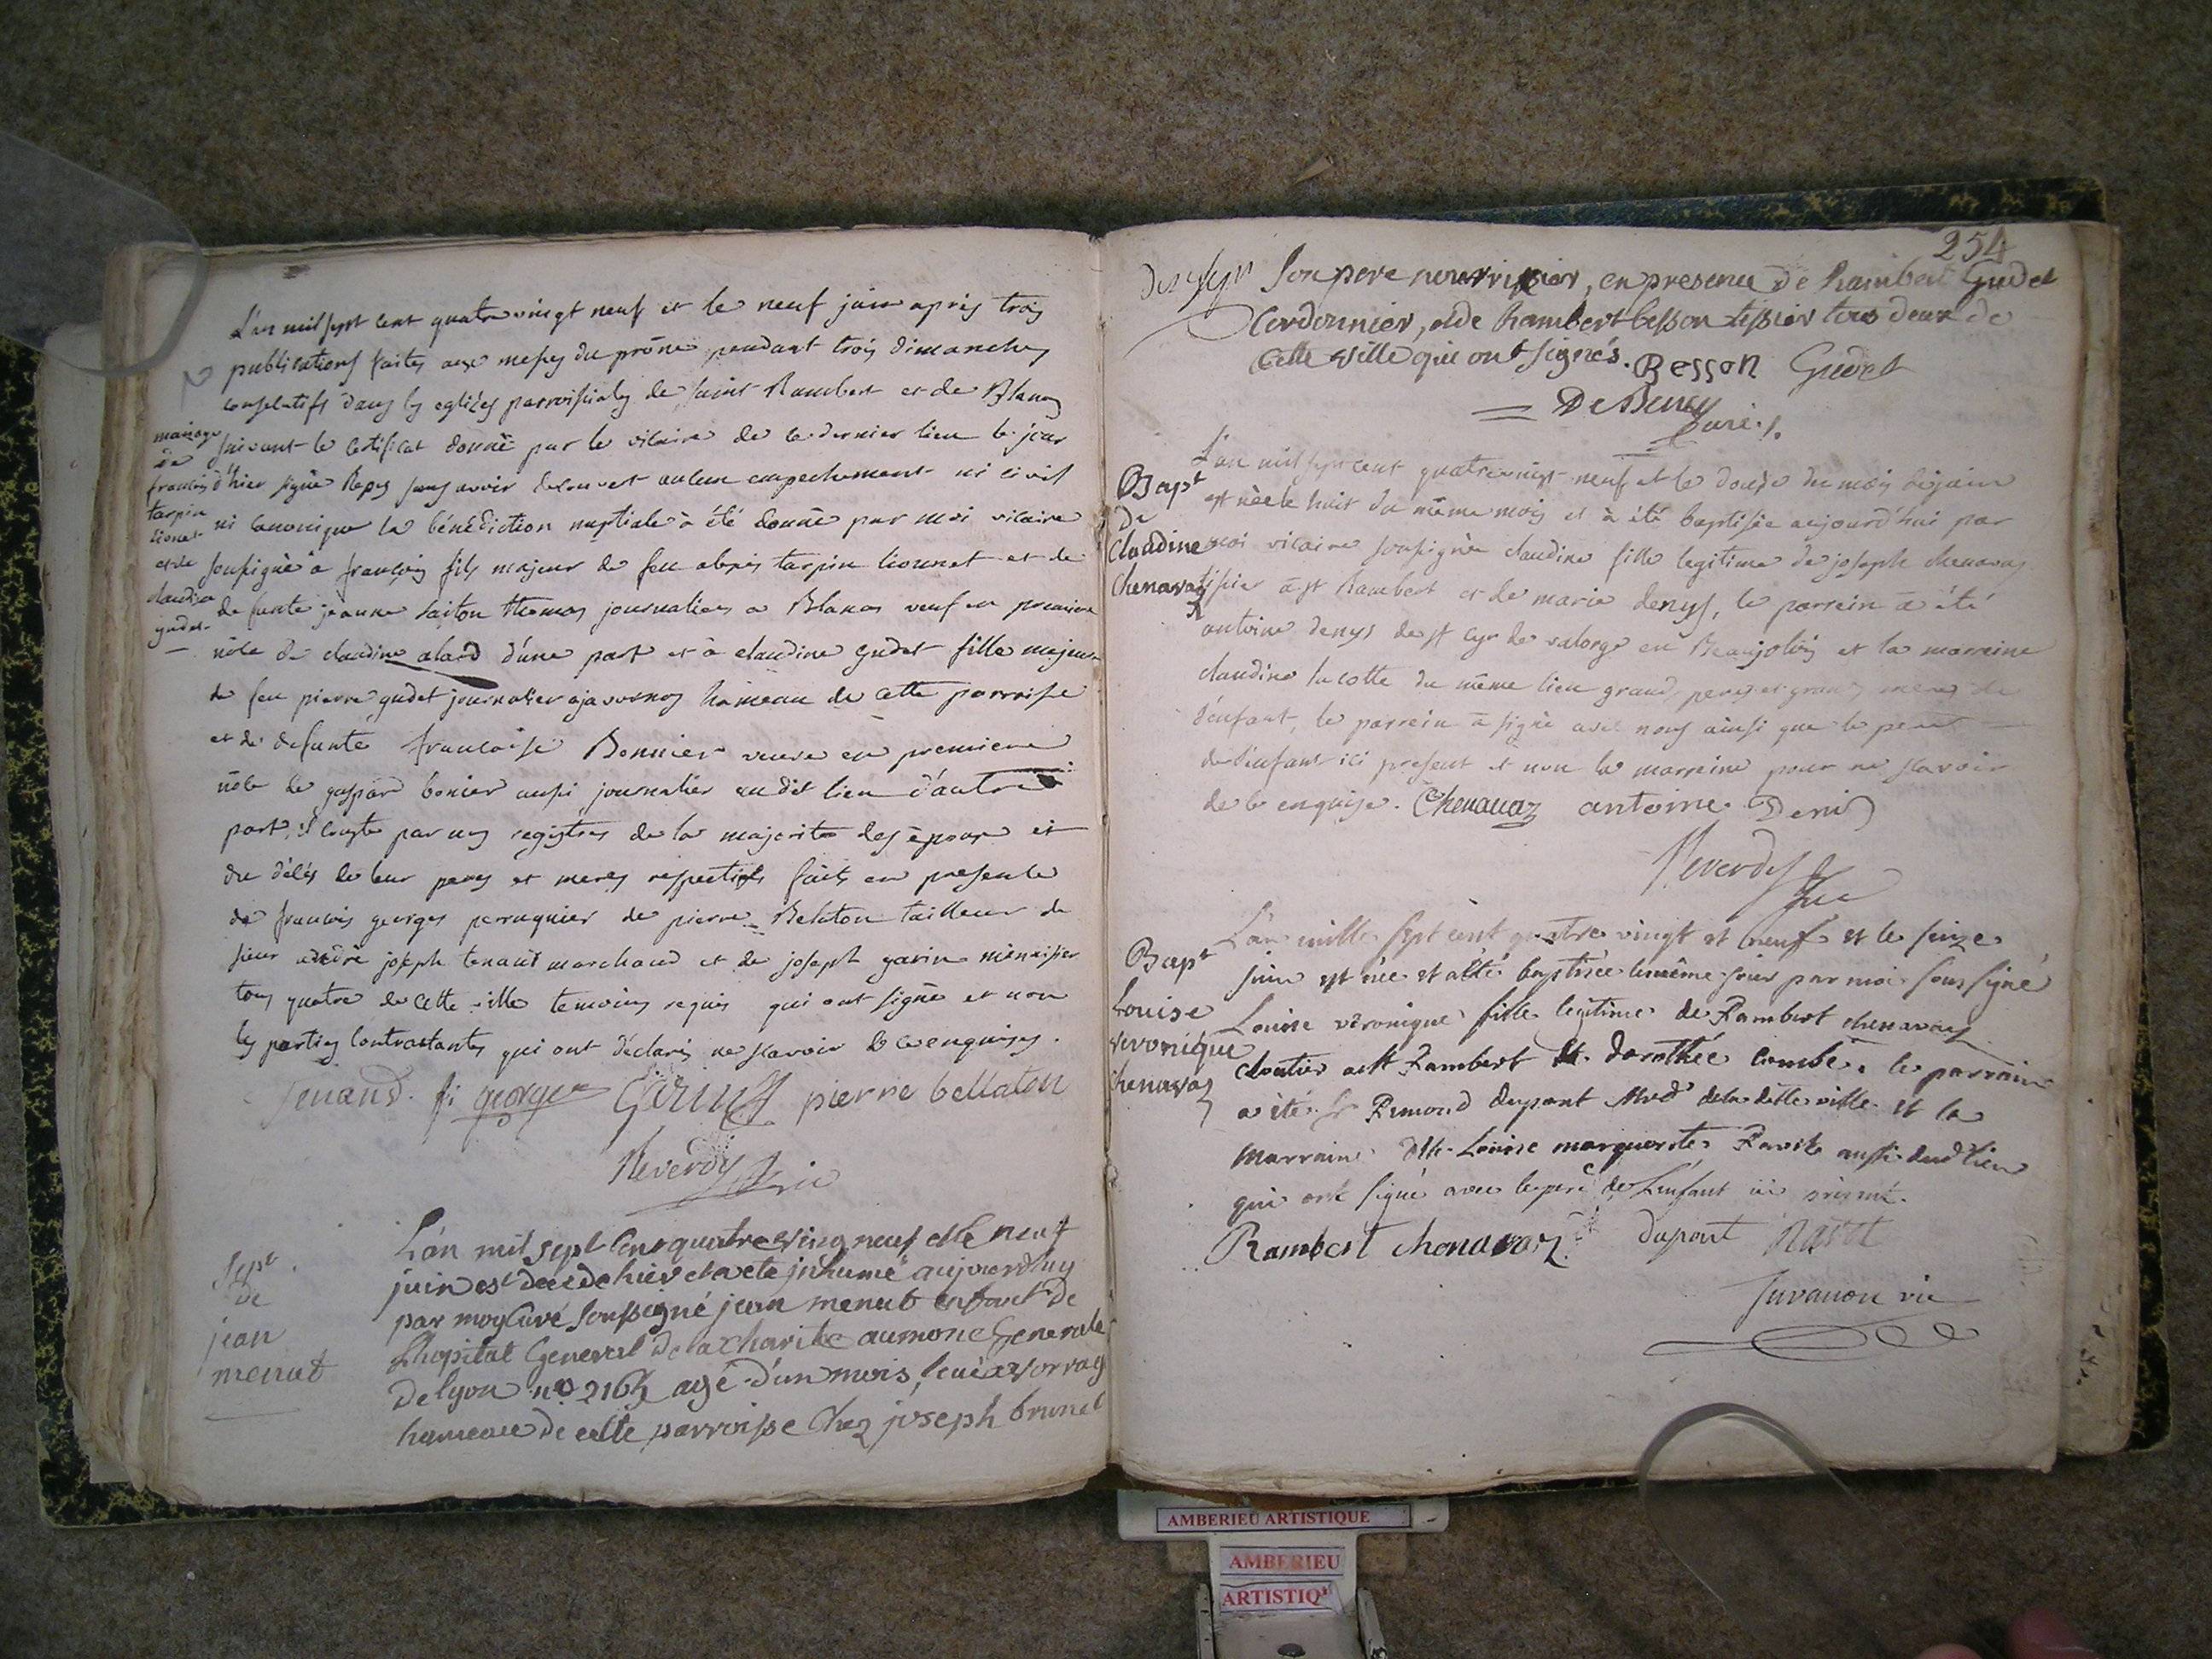 L'an mil sept cent quatre vingt neuf et le neuf juin après trois
publications faites aux messes du prône pendant trois dimanches
consecutifs dans les eglises parroissiales de saint Rambert et de Blanas
mariage
de
francois
tarpin
lionet
et de
claudine
gudet
suivant le certificat donné par le vicaire de ce dernier lieu le jour
d'hier signé sans avoir decouvert aucun empechement ni civil
ni canonique la bénédiction nuptiale à été donnée par moi vicaire
soussigné à françois fils majeur de feu alexis tarpin liounet et de
defunte jeanne thomas journalier a Blanas veuf en premiere
nôce de claudine alard d'une part et à claudine gudet fille majeure
de feu pierre gudet journalier a javornos hameau de cette parroisse
et de defunte francoise Bonnier veuve en premiere
nôce de gaspard bonier aussi journalier audit lieu d'autre
part, il conste par nos registres de la majorité des époux et
du décès de leur peres et meres respectifs faits en presence
de francois georges perruquier de pierre Belaton tailleur de
sieur andré joseph tenand marchand et de joseph garin menuisier
tous quatre de cette ville temoins requis qui ont signé et non
les parties contractantes qui ont déclaré ne scavoir de ce enquises.
tenand. georges Garin pierre bellaton
Reverdy vic
sept
de
jean
menut
L'an mil sept cent quatre ving neuf et le neuf
juin est decede hier et a ete inhumé aujourdhuy
par moy curé soussigné jean menut enfant de
Lhopital General de la charite aumone Generale
de lyon no agé d'un mois, a vorvay
hameau de cette parroisse chez joseph brunet
254
son pere nourrissier, en presence de Rambert Gudet
Cordonnier, et de Rambert besson tissier tous deux de
cette ville qui ont signés. Besson Gudet
curé.
Bapt
de
Claudine
chenavaz
L'an mil sept cent quatre vingt-neuf et le douze du mois de juin
est née le huit du même mois et à été baptisée aujourd'hui par
moi vicaire soussigné claudine fille legitime de joseph chenavaz
tissier à st Rambert et de marie denys, le parrein a été
antoine denys de st cyr de valorge en Beaujolois et la marreine
claudine lacotte du même lieu grand pere et grand mere de
l'enfant, le parrein à signé avec nous ainsi que le pere
de l'enfant ici present et non la marreine pour ne scavoir
de ce enquise. Chenavaz antoine Denis
Reverdy vic
Bapt
Louise
veronique
chenavaz
L'an mille sept cent quatre vingt et neuf et le seize
juin est née et a été baptisée le même jour par moi sous signé
Louise véronique fille legitime de Rambert chenavaz
cloutier a st Rambert et dorothée combe. le parrain
a été sr Rimond dupont Md de la dette ville et la
marraine dlle Louise marguerite Ravet aussi dud lieu
qui ont signé avec le pere de L'enfant ici
Rambert chenavaz dupont Ravet
Juvanon vic
AMBERIEU ARTISTIQUE
AMBERIEU
ARTISTIQ